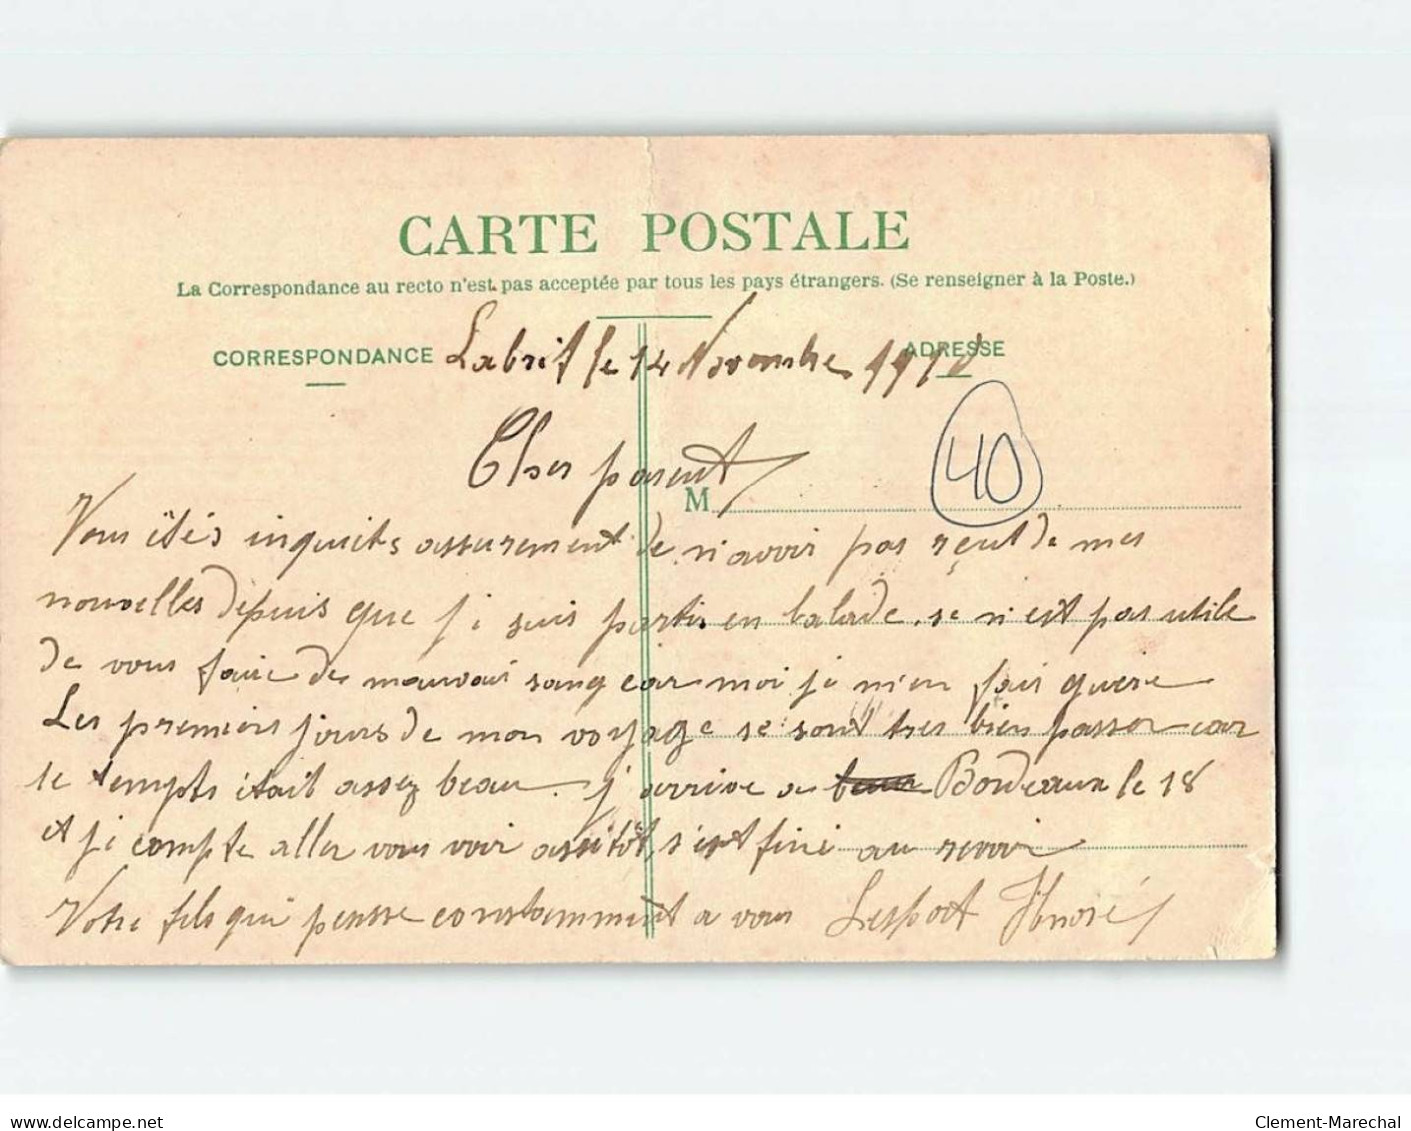 CARTE POSTALE
La Correspondance au recto n'est pas acceptée par tous les pays étrangers. (Se renseigner à la Poste.)
CORRESPONDANCE
ADRESSE
Labrit le 14 Novembre 1910
40
Cher parent
M
Vous êtés inquiets assurement de n'avoir pas reçut de mes
nouvelles depuis que j i suis partis en balade. se n'est pas utile
de vous faire de mauvais sang car moi je m'en fais guere
Les premiers jours de mon voyage se sont tres bien passer car
le tempts était assez beau. j arrive a Bordeaux le 18
et je compte aller vous voir assitôt, s'est fini au revoir
Votre fils qui pensse constamment a vous Lesport Honoré
Delcampe.net
Clement-Marechal